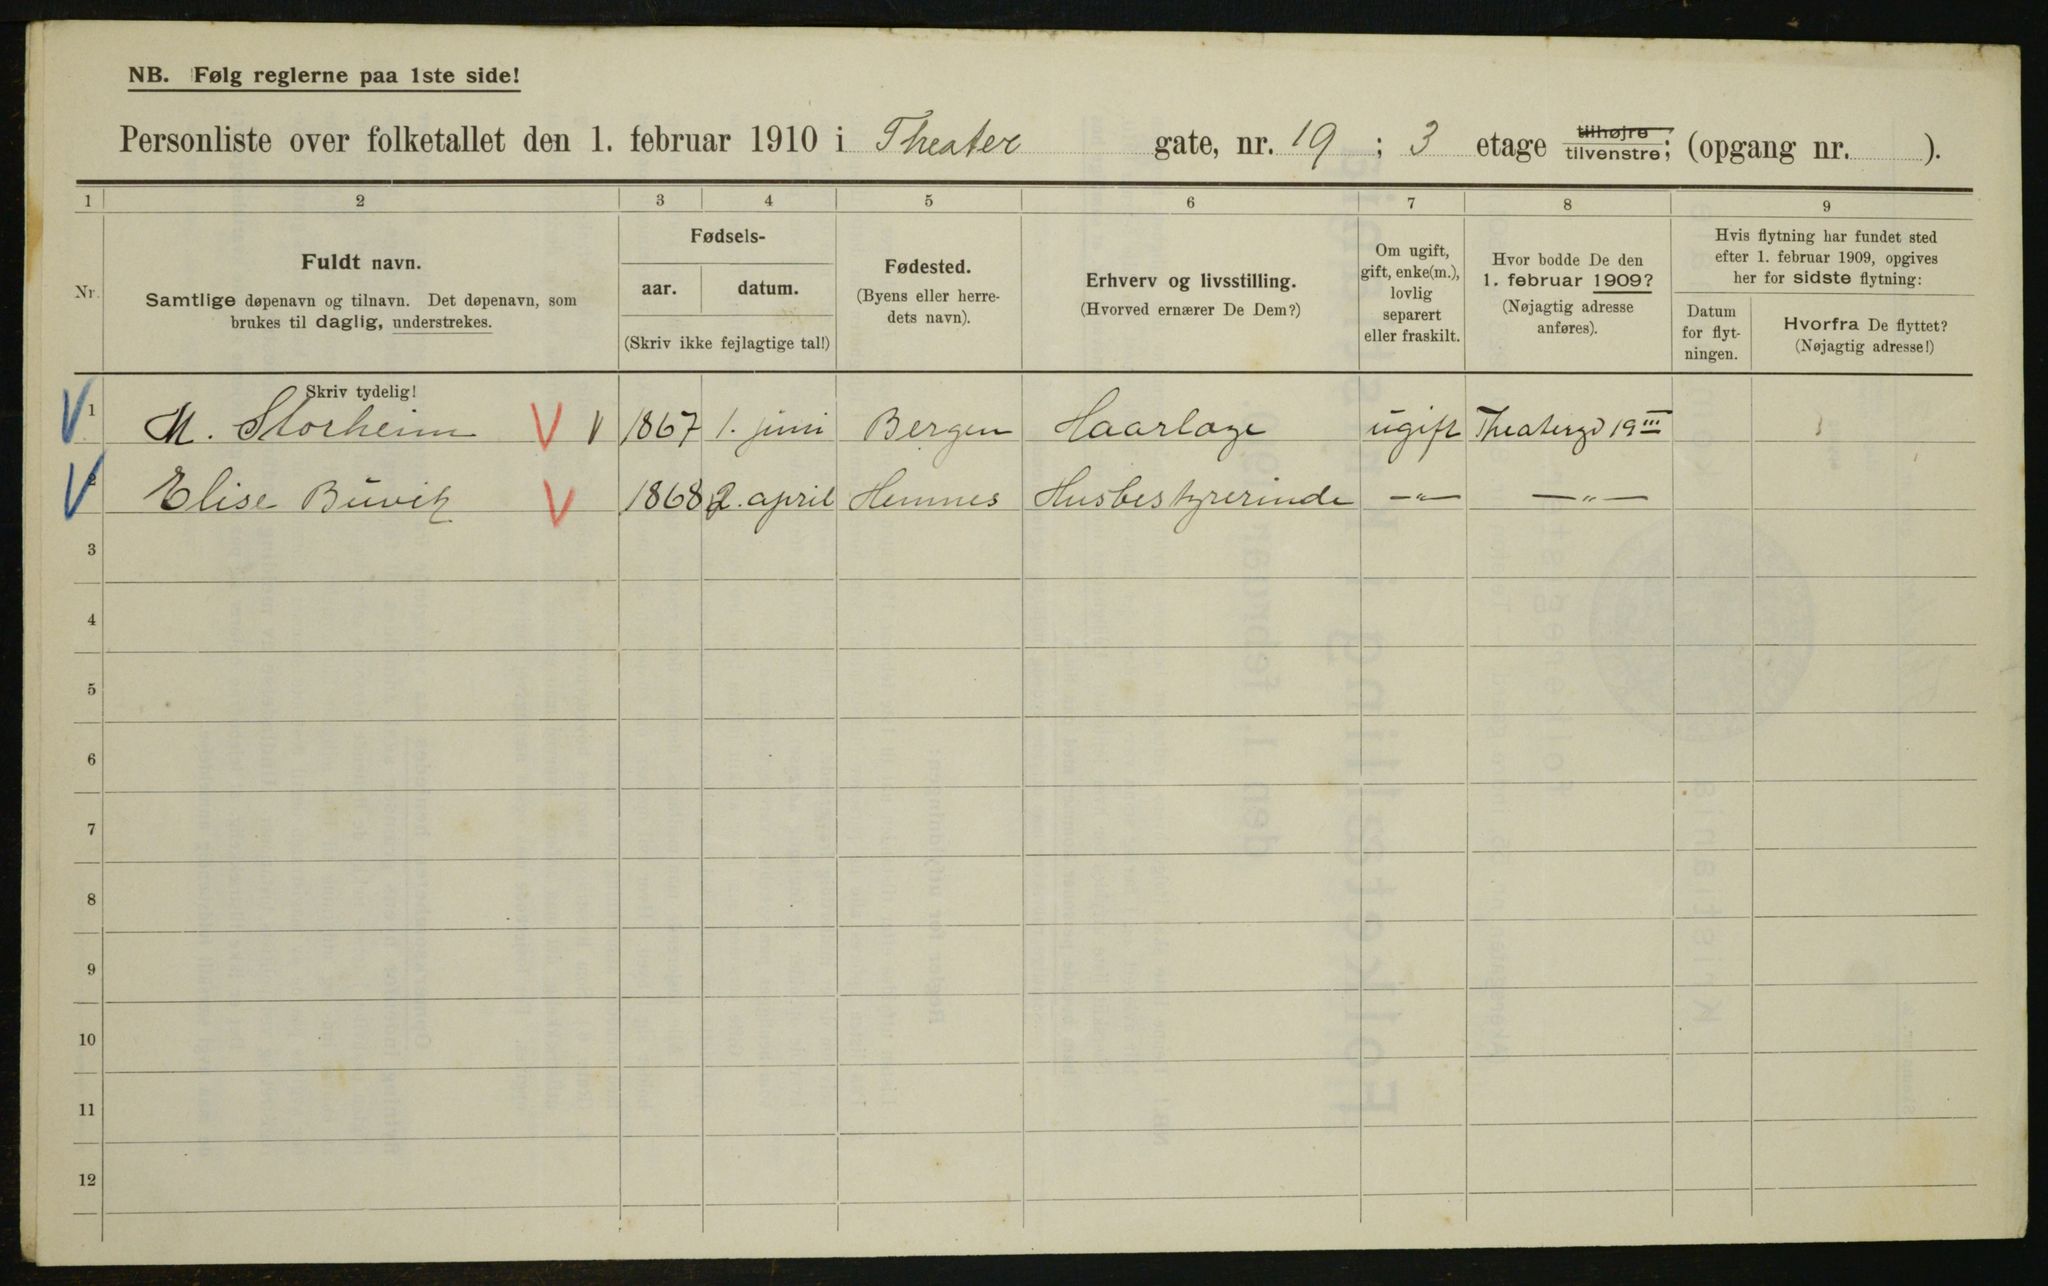 NB. Følg reglerne paa 1ste side!
Personliste over folketallet den 1. februar 1910 i Theater gate, nr. 19 ; 3 etage tilhøjre tilvenstre; (opgang nr. ).
1 2 3 4 5 6 7 8 9
Nr.
Fuldt navn.
Samtlige døpenavn og tilnavn. Det døpenavn, som
brukes til daglig, understrekes.
Fødsels-
aar. datum.
(Skriv ikke fejlagtige tal!)
Fødested.
(Byens eller herre-
dets navn).
Erhverv og livsstilling.
(Hvorved ernærer De Dem?)
Om ugift,
gift, enke(m.),
lovlig
separert
eller fraskilt.
Hvor bodde De den
1. februar 1909?
(Nøjagtig adresse
anføres).
Hvis flytning har fundet sted
efter 1. februar 1909, opgives
her for sidste flytning:
Datum
for flyt-
ningen.
Hvorfra De flyttet?
(Nøjagtig adresse!)
Skriv tydelig!
1 M. Storheim 1867 1. juni Bergen Haarlage ugift Theatergd 19 III
2 Elise Buvik 1868 2. april Hemnes Husbestyrerinde —„— —„—
3
4
5
6
7
8
9
10
11
12